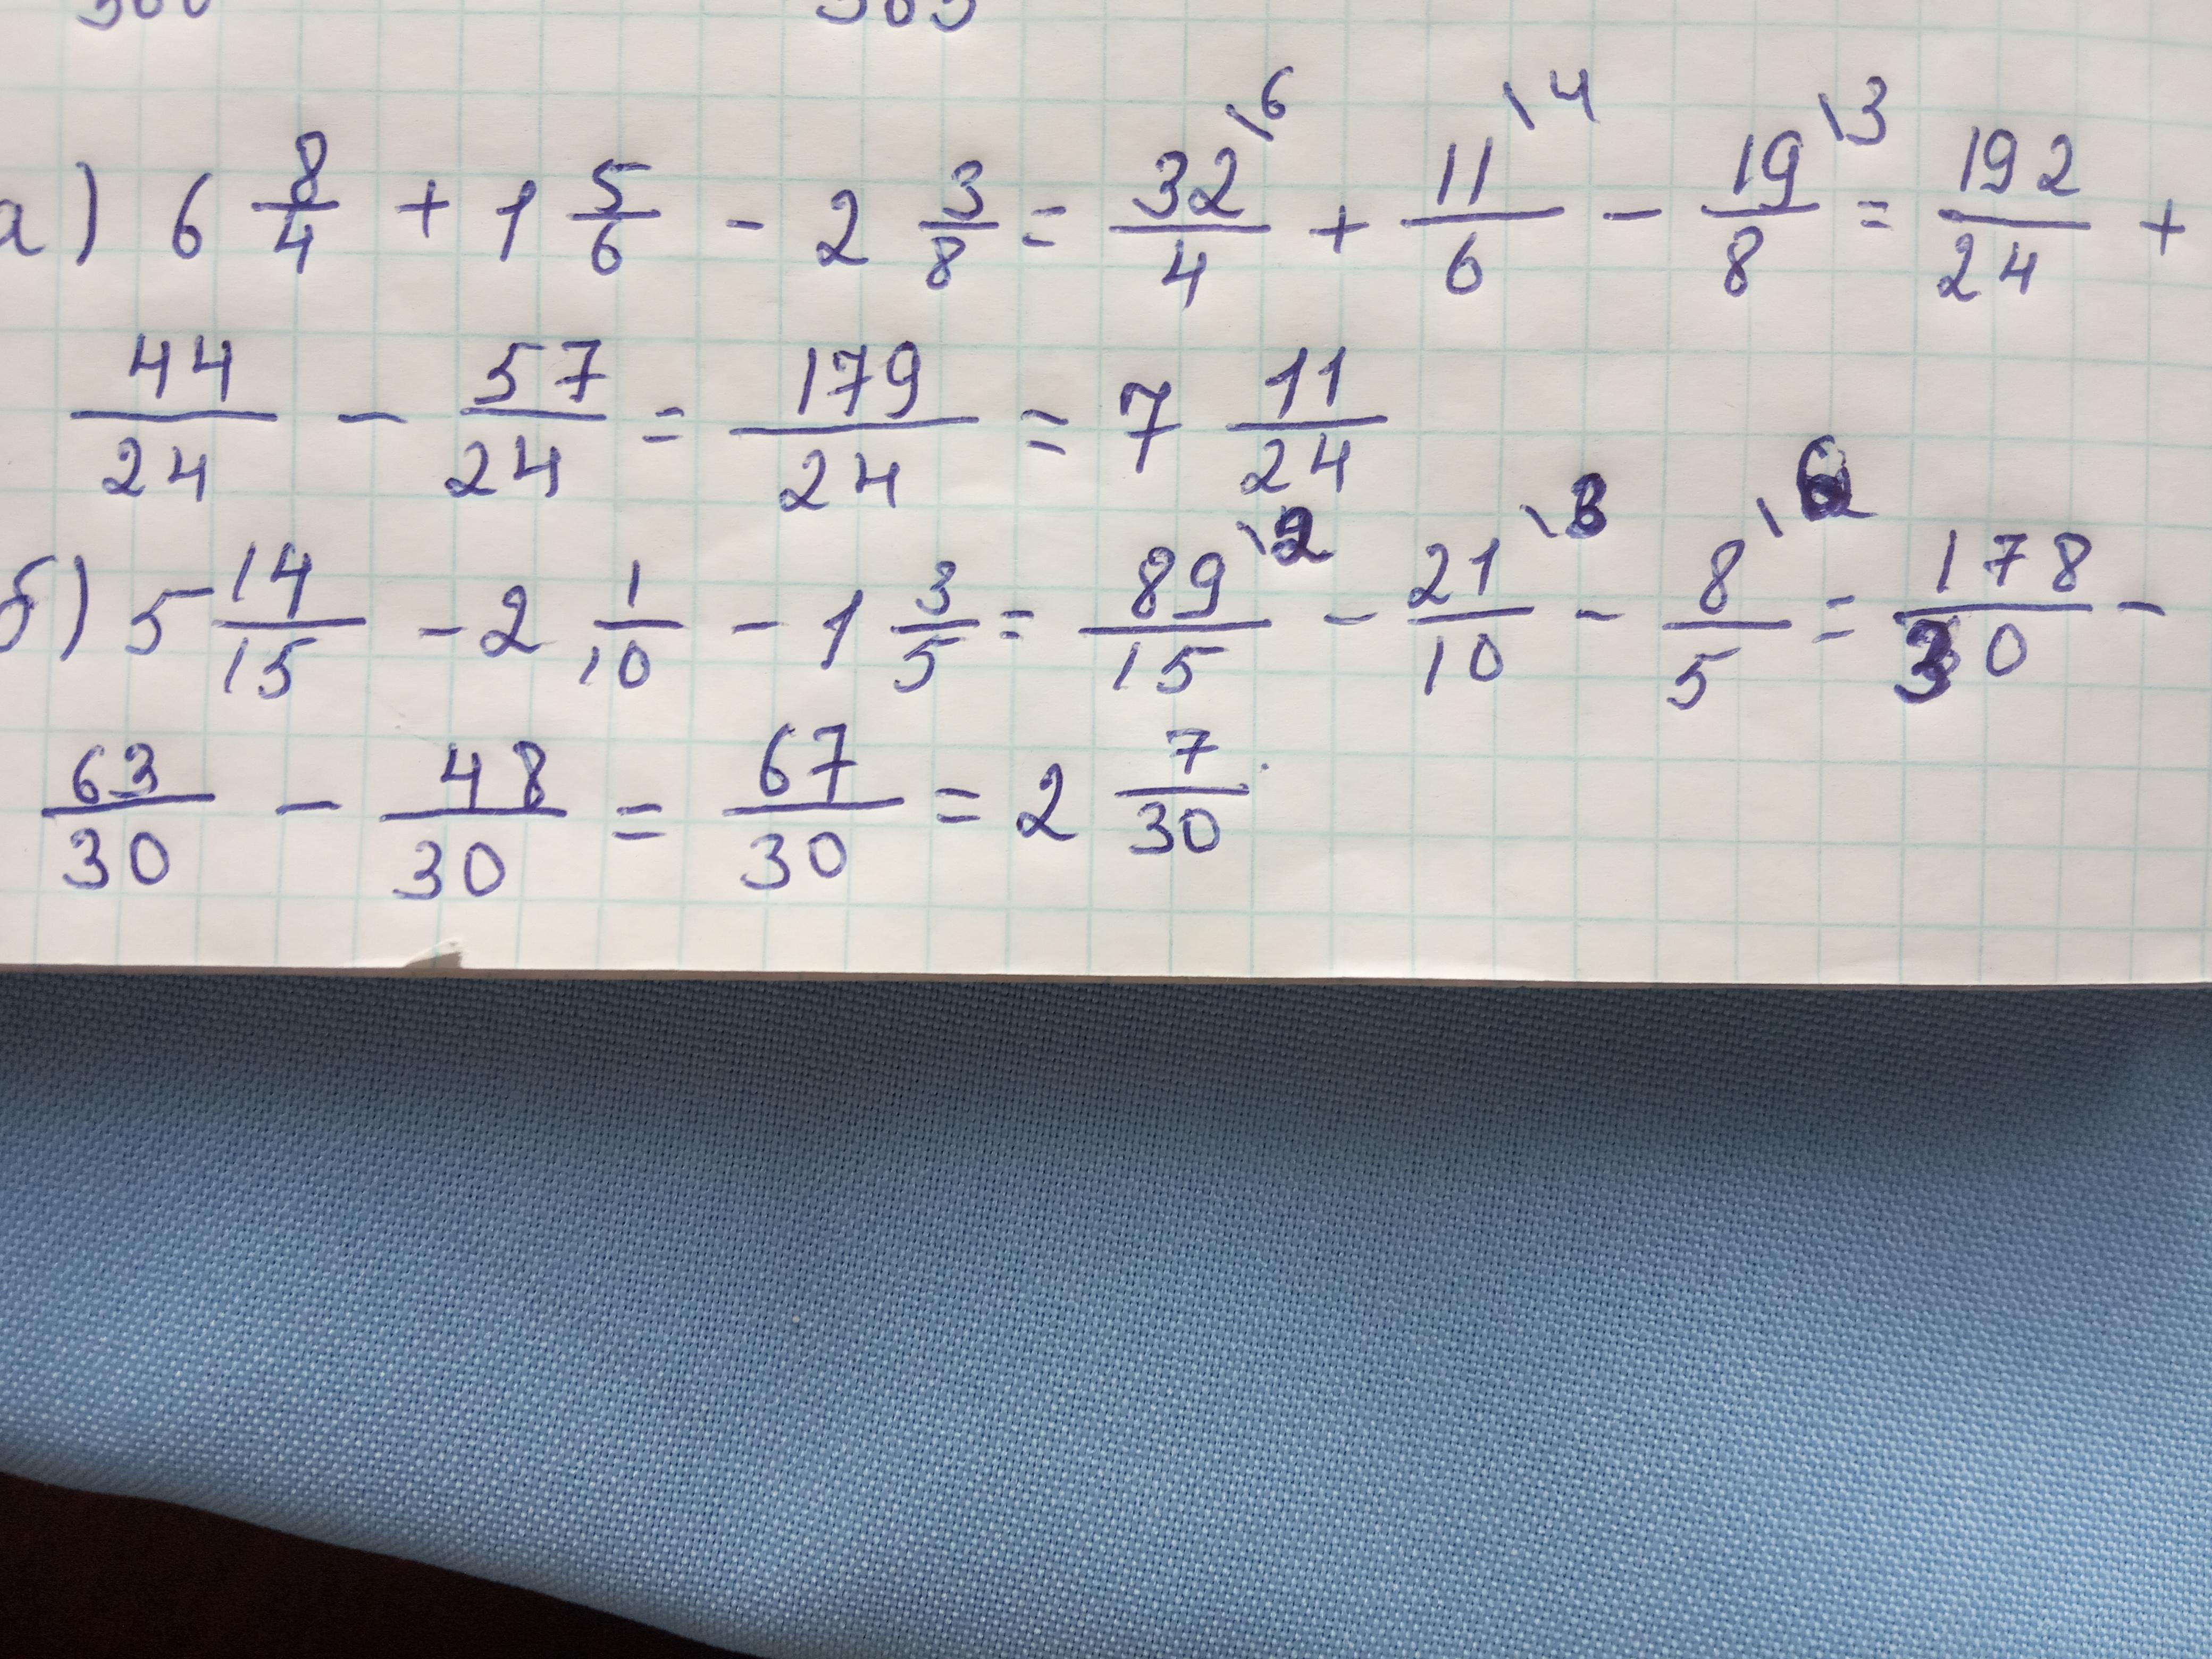 а) 6 8/4 + 1 5/6 - 2 3/8 = 32/4 \6 + 11/6 \4 - 19/8 \3 = 192/24 +
44/24 - 57/24 = 179/24 = 7 11/24
б) 5 14/15 - 2 1/10 - 1 3/5 = 89/15 \2 - 21/10 \3 - 8/5 \6 = 178/30 -
63/30 - 48/30 = 67/30 = 2 7/30